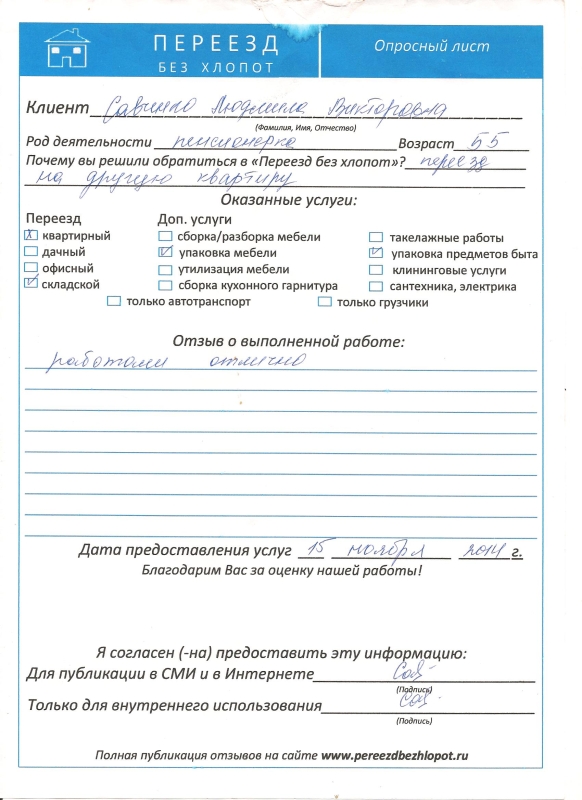 ПЕРЕЕЗД
БЕЗ ХЛОПОТ
Опросный лист
Клиент Савченко Людмила Викторовна
(Фамилия, Имя, Отчество)
Род деятельности пенсионерка Возраст 55
Почему вы решили обратиться в «Переезд без хлопот»? переезд
на другую квартиру
Оказанные услуги:
Переезд Доп. услуги
квартирный сборка/разборка мебели такелажные работы
дачный упаковка мебели упаковка предметов быта
офисный утилизация мебели клининговые услуги
складской сборка кухонного гарнитура сантехника, электрика
только автотранспорт только грузчики
Отзыв о выполненной работе:
работали отлично
Дата предоставления услуг 15 ноября 2014 г.
Благодарим Вас за оценку нашей работы!
Я согласен (-на) предоставить эту информацию:
Для публикации в СМИ и в Интернете
(Подпись)
Только для внутреннего использования
(Подпись)
Полная публикация отзывов на сайте www.pereezdbezhlopot.ru